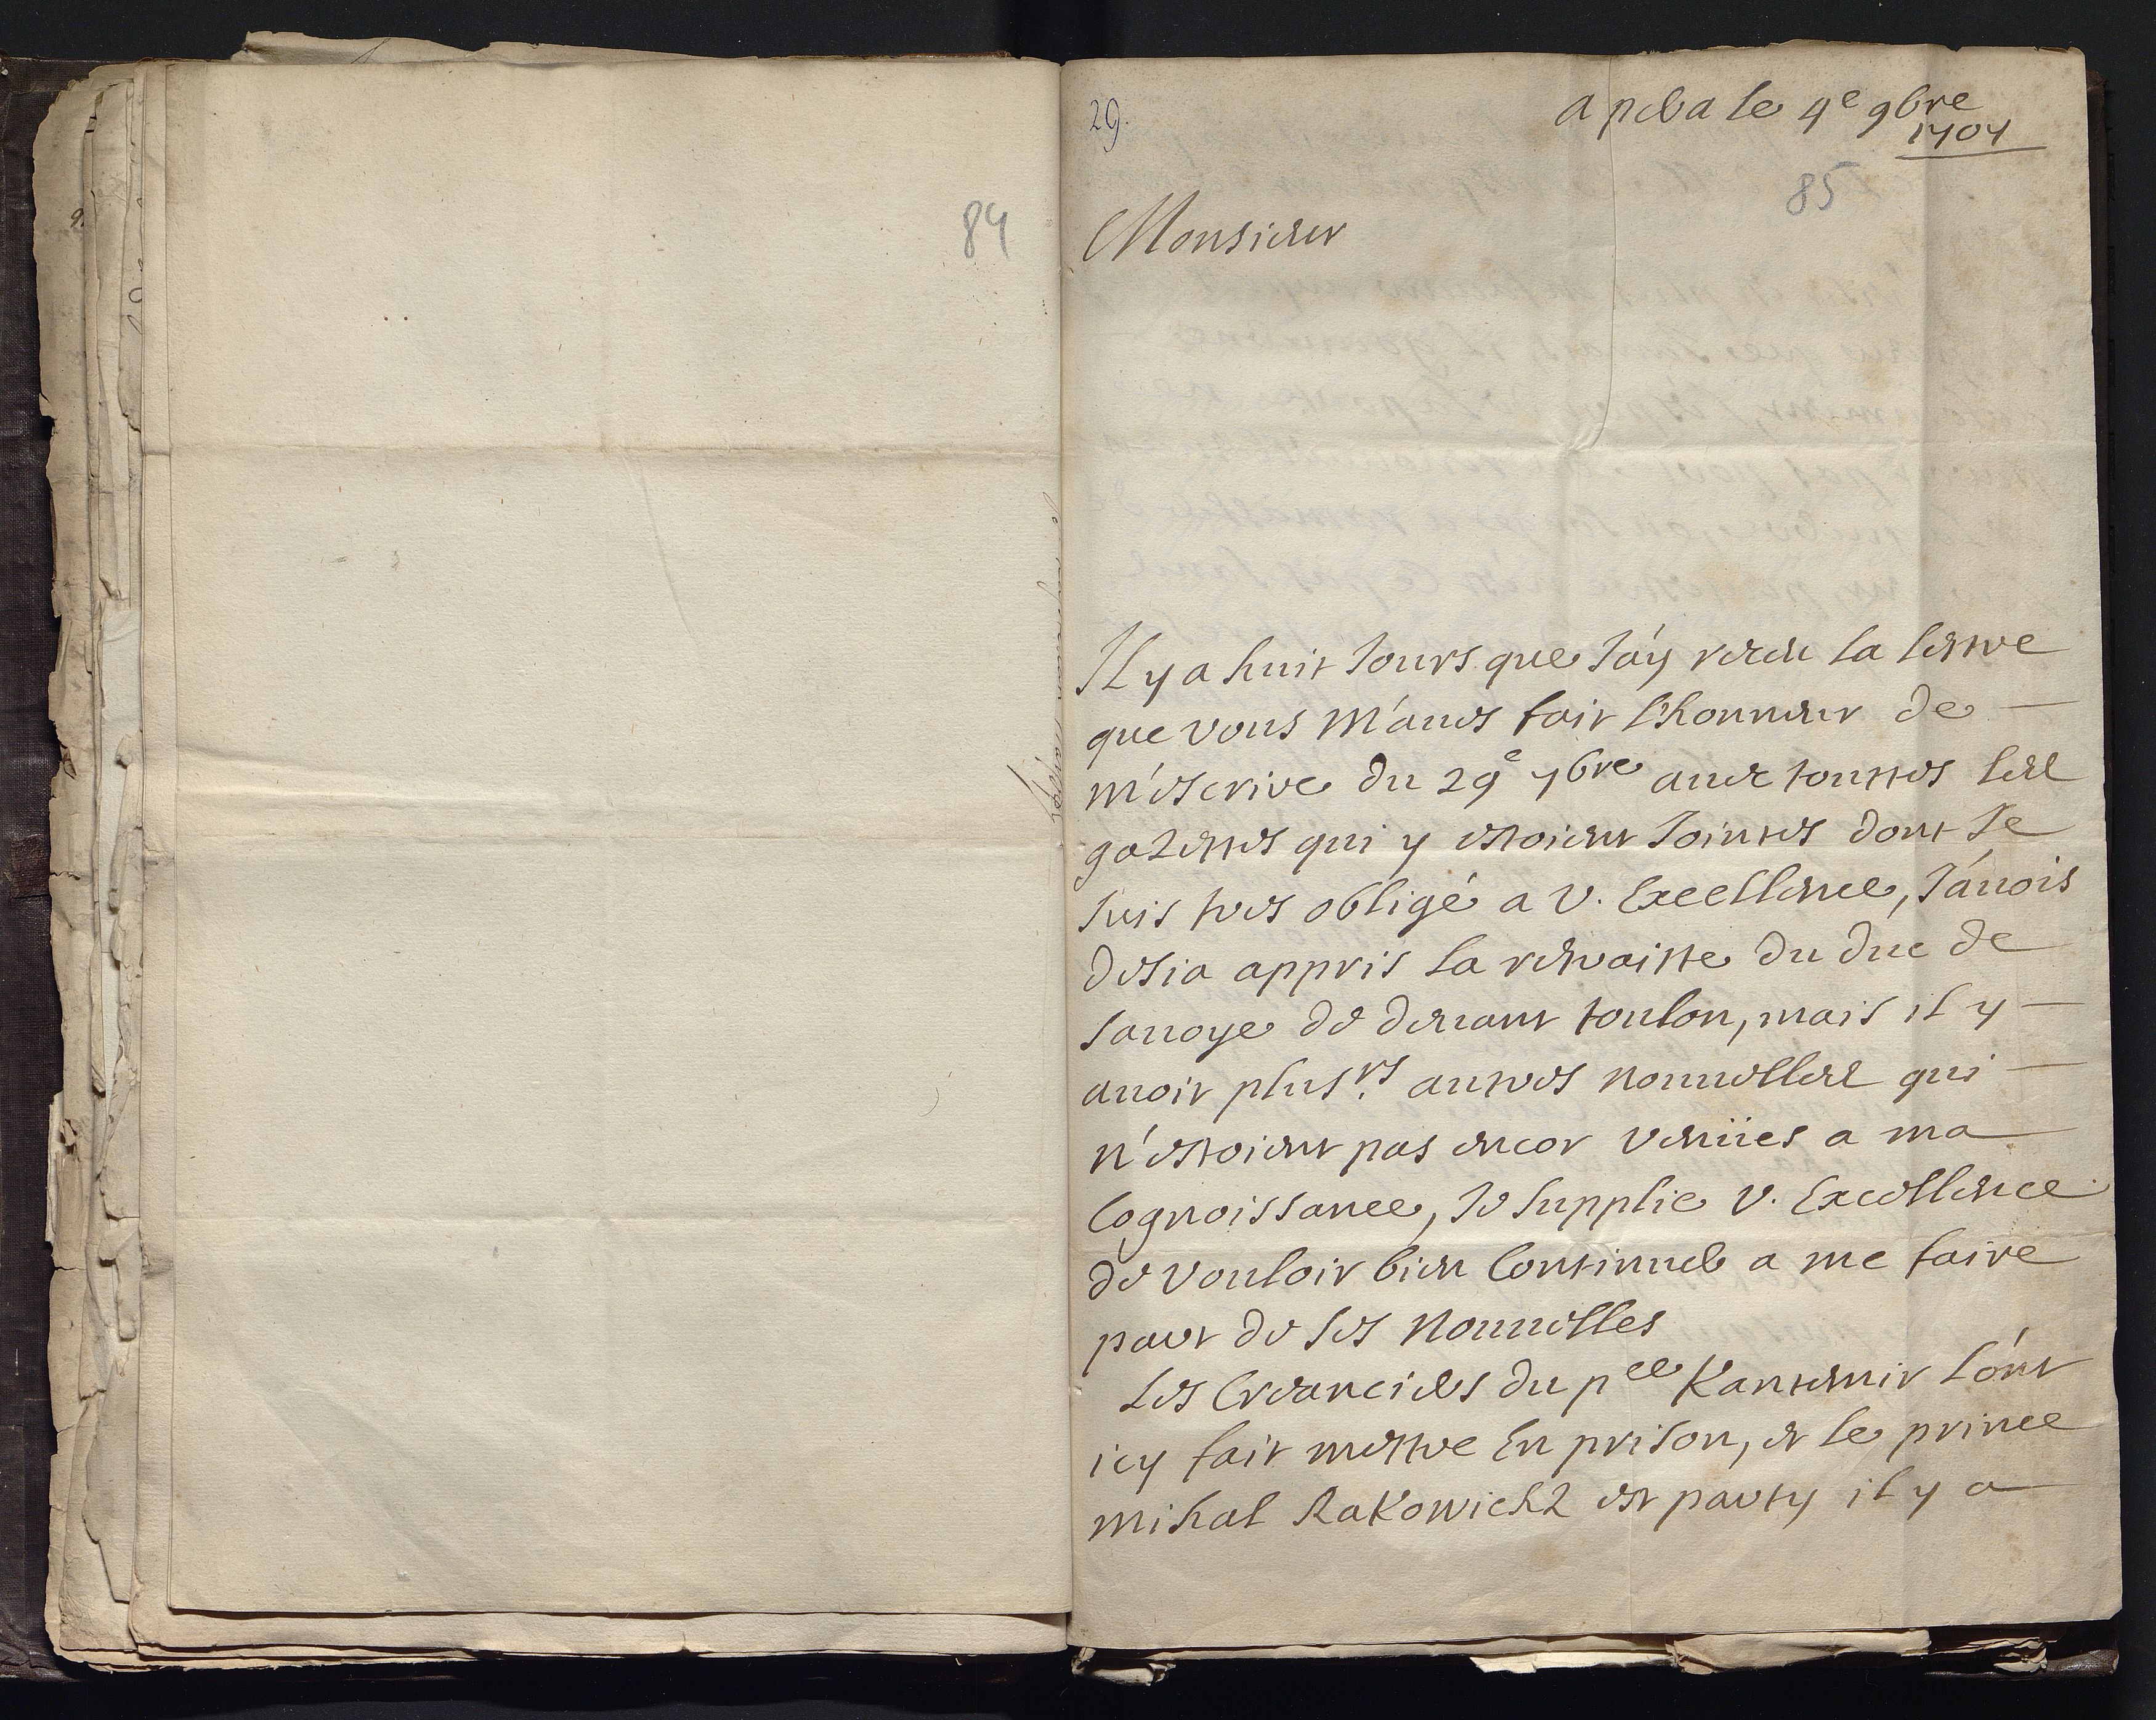 84
29.
a pera le 4e 9bre
1707
85
Monsieur
Il y a huit Jours que J'ay receu la lettre
que vous m'aues fait l'honneur de
m'escrire du 29e 7bre auec touttes les
gazettes qui y estoient Jointes dont Je
suis tres obligé a V. Excellence, J'auois
desia appris la retraitte du duc de
sauoye de deuant toulon, mais il y
auoit plusrs. autres nouuelles qui
n'estoient pas encor venües a ma
Cognoissance, Je supplie V. Excellence
de vouloir bien Continuer a me faire
part de ses nouuelles
Les Creanciers du pce Kantemir l'ont
icy fait mettre En prison, et le prince
mihal Rakowichz est party il y a